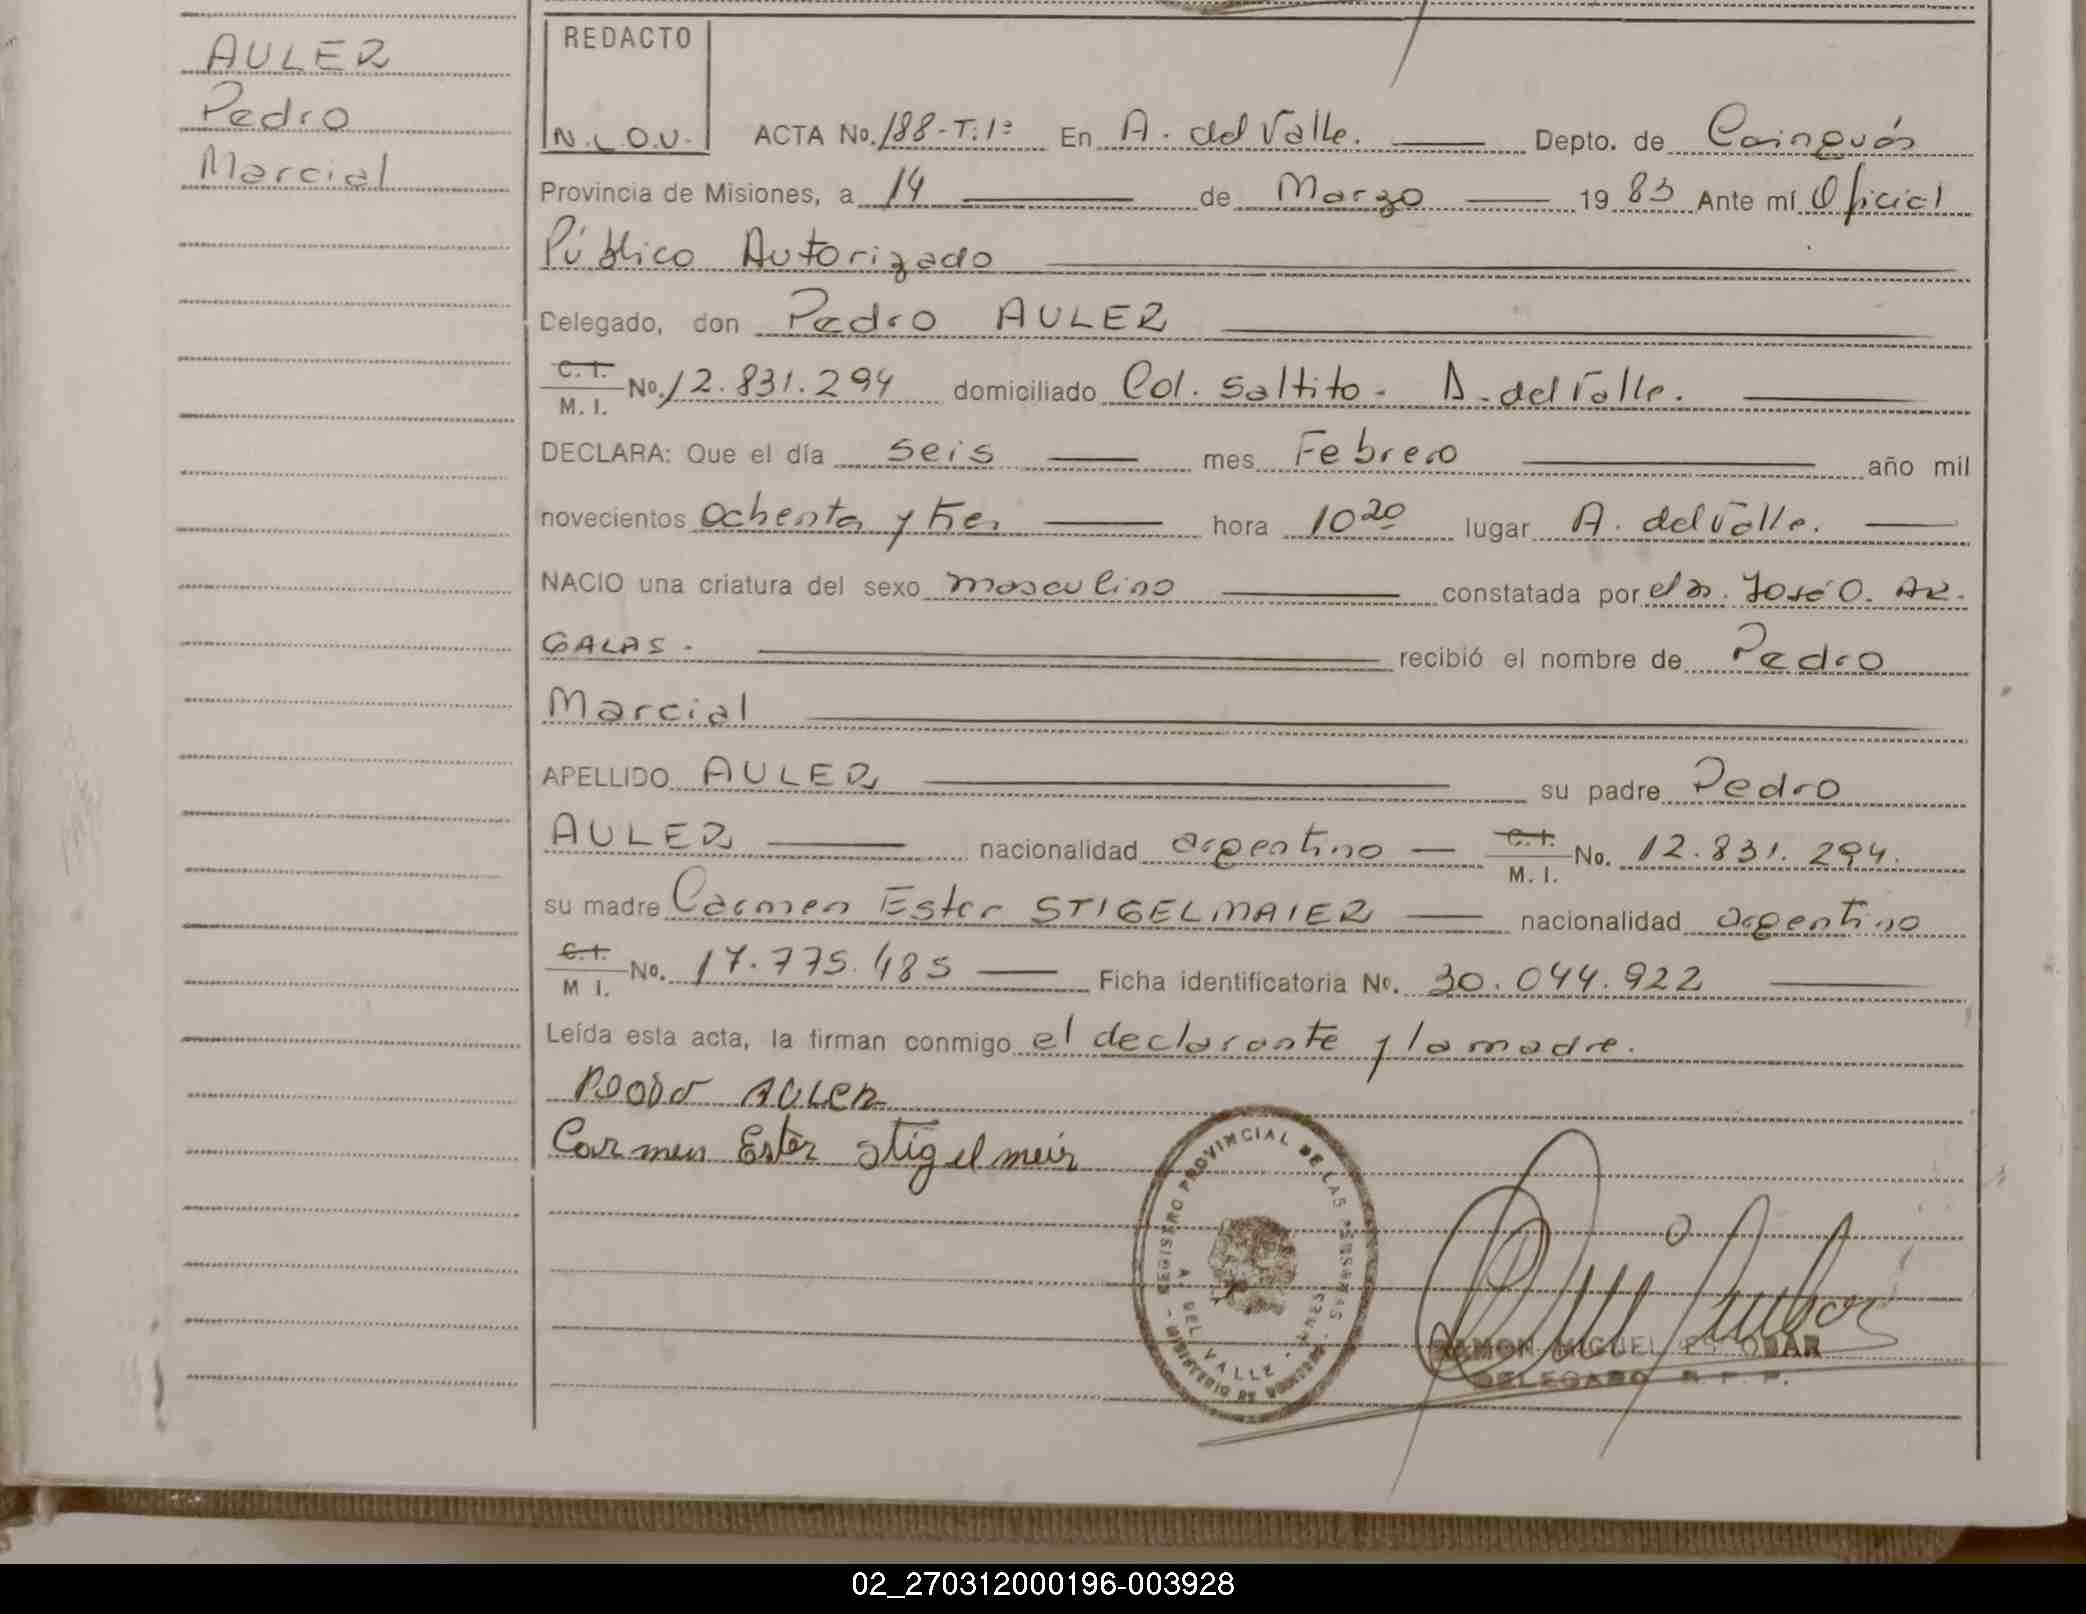 AULER
Pedro
Marcial
REDACTO
N.L.O.V.
ACTA No. 188-T:1º En A. del Valle. Depto. de Cainguás
Provincia de Misiones, a 14 de Marzo 1983 Ante mí Oficial
Público Autorizado
Delegado, don Pedro AULER
C. I. M. I. No. 12.831.294 domiciliado Col. Saltito - A. del Valle.
DECLARA: Que el día seis mes Febrero año mil
novecientos Ochenta y tres hora 10 20 lugar A. del Valle.
NACIO una criatura del sexo masculino constatada por el Dr. José O. AR-
GALAS. recibió el nombre de Pedro
Marcial
APELLIDO AULER su padre Pedro
AULER nacionalidad argentino C. I. M. I. No. 12.831.294.
su madre Carmen Ester STIGELMAIER nacionalidad argentino
C. I. M I. No. 17.775.485 Ficha identificatoria No. 30.044.922
Leída esta acta, la firman conmigo el declarante y la madre.
Pedro AULER
Carmen Ester Stigelmeir
REGISTRO PROVINCIAL DE LAS PERSONAS - MINISTERIO DE GOBIERNO -
A. DEL VALLE - MNES
RAMON MIGUEL ESCOBAR
DELEGADO R. P. P.
02_270312000196-003928